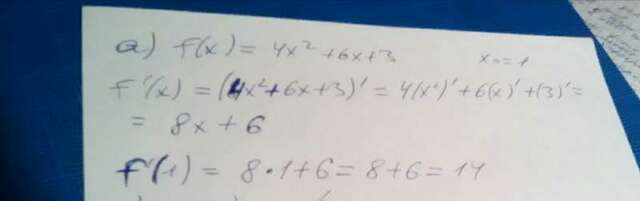 a) f(x) = 4x² + 6x + 3 x₀ = 1
f'(x) = (4x² + 6x + 3)' = 4(x²)' + 6(x)' + (3)' =
= 8x + 6
f'(1) = 8 • 1 + 6 = 8 + 6 = 14